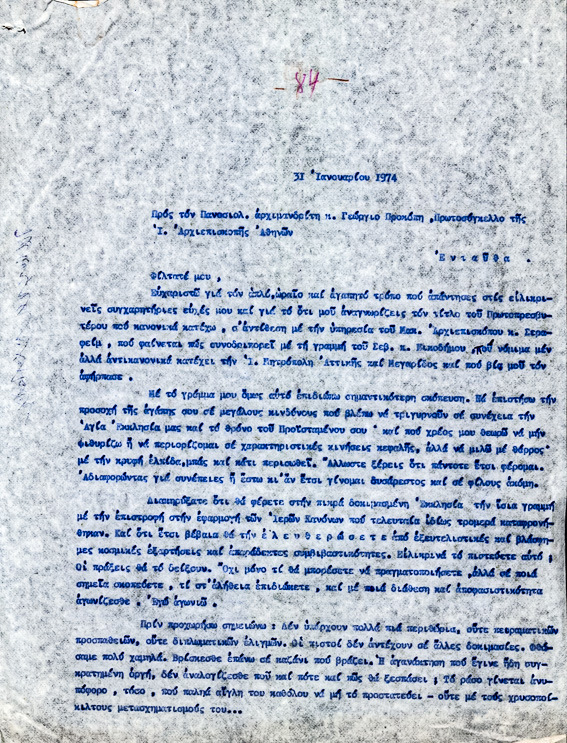 - 84 -
31 Ἰανουαρίου 1974
Πρός τόν Πανοσιολ. ἀρχιμανδρίτη κ. Γεώργιο Προκόπη ,Πρωτοσύγκελλο τῆς
Ἱ. Ἀρχιεπισκοπῆς Ἀθηνῶν
Ἐ ν τ α ῦ θ α .
Φίλτατέ μου ,
Εὐχαριστῶ γιά τόν ἁπλό,ὡραῖο καί ἀγαπητό τρόπο πού ἀπάντησες στίς εἰλικρι-
νεῖς συγχαρητήριες εὐχές μου καί γιά τό ὅτι μοῦ ἀναγνωρίζεις τόν τίτλο τοῦ Πρωτοπρεσβυ-
τέρου πού κανονικά κατέχω , σ'ἀντίθεση μέ τήν ὑπηρεσία τοῦ Μακ. Ἀρχιεπισκόπου κ. Σερα-
φείμ , πού φαίνεται πώς συνοδοιπορεῖ μέ τή γραμμή τοῦ Σεβ. κ. Νικοδήμου ,πού νόμιμα μέν
ἀλλά ἀντικανονικά κατέχει τήν Ἱ. Μητρόπολη Ἀττικῆς καί Μεγαρίδος καί πού βίᾳ μοῦ τόν
ἀφήρπασε .
Μέ τό γράμμα μου ὅμως αὐτό ἐπιδιώκω σημαντικότερη σκόπευση. Νά ἐπιστήσω τήν
προσοχή τῆς ἀγάπης σου σέ μεγάλους κινδύνους πού βλέπω νά τριγυρνοῦν σέ συνέχεια τήν
Ἁγία Ἐκκλησία μας καί τό θρόνο τοῦ Προϊσταμένου σου · καί πού χρέος μου θεωρῶ νά μήν
ψιθυρίζω ἤ νά περιορίζομαι σέ χαρακτηριστικές κινήσεις κεφαλῆς, ἀλλά νά μιλῶ μέ θάρρος
μέ τήν κρυφή ἐλπίδα,μπάς καί κάτι περισωθεῖ. Ἄλλωστε ξέρεις ὅτι πάντοτε ἔτσι φέρομαι.
Ἀδιαφορώντας γιά συνέπειες ἤ ἔστω κι'ἄν ἔτσι γίνομαι δυσάρεστος καί σέ φίλους ἀκόμη.
Διακηρύξατε ὅτι θά φέρετε στήν πικρά δοκιμασμένη Ἐκκλησία τήν ἴσια γραμμή
μέ τήν ἐπιστροφή στήν ἐφαρμογή τῶν Ἱερῶν Κανόνων πού τελευταῖα ἰδίως τρομερά καταφρονή-
θηκαν. Καί ὅτι ἔτσι βέβαια θά τήν ἐ λ ε υ θ ε ρ ώ σ ε τ ε ἀπό ἐξευτελιστικές καί βλάσφη-
μες κοσμικές ἐξαρτήσεις καί ἀπαράδεκτες συμβιβαστικότητες. Εἰλικρινά τό πιστεύετε αὐτό ;
Οἱ πράξεις θά τό δείξουν. Ὄχι μόνο τί θά μπορέσετε νά πραγματοποιήσετε ,ἀλλά σέ ποιά
σημεῖα σκοπεύετε , τί στ'ἀλήθεια ἐπιδιώκετε , καί μέ ποιά διάθεση καί ἀποφασιστικότητα
ἀγωνίζεσθε . Ἐγώ ἀγωνιῶ .
Πρίν προχωρήσω σημειώνω : Δέν ὑπάρχουν πολλά πιά περιθώρια, οὔτε πειραματικῶν
προσπαθειῶν, οὔτε διπλωματικῶν ἑλιγμῶν. Οἱ πιστοί δέν ἀντέχουν σέ ἄλλες δοκιμασίες. Φθά-
σαμε πολύ χαμηλά. Βρίσκεσθε ἐπάνω σέ καζάνι πού βράζει. Ἡ ἀγανάκτηση πού ἔγινε ἤδη συγ-
κρατημένη ὀργή, δέν ἀναλογίζεσθε ποῦ καί πότε καί πῶς θά ξεσπάσει ; Τό ράσο γίνεται ἀνυ-
πόφορο , τόσο , πού παληά αἴγλη του καθόλου νά μή τό προστατεύει - οὔτε μέ τούς χρυσοποί-
κιλτους μετασχηματισμούς του...